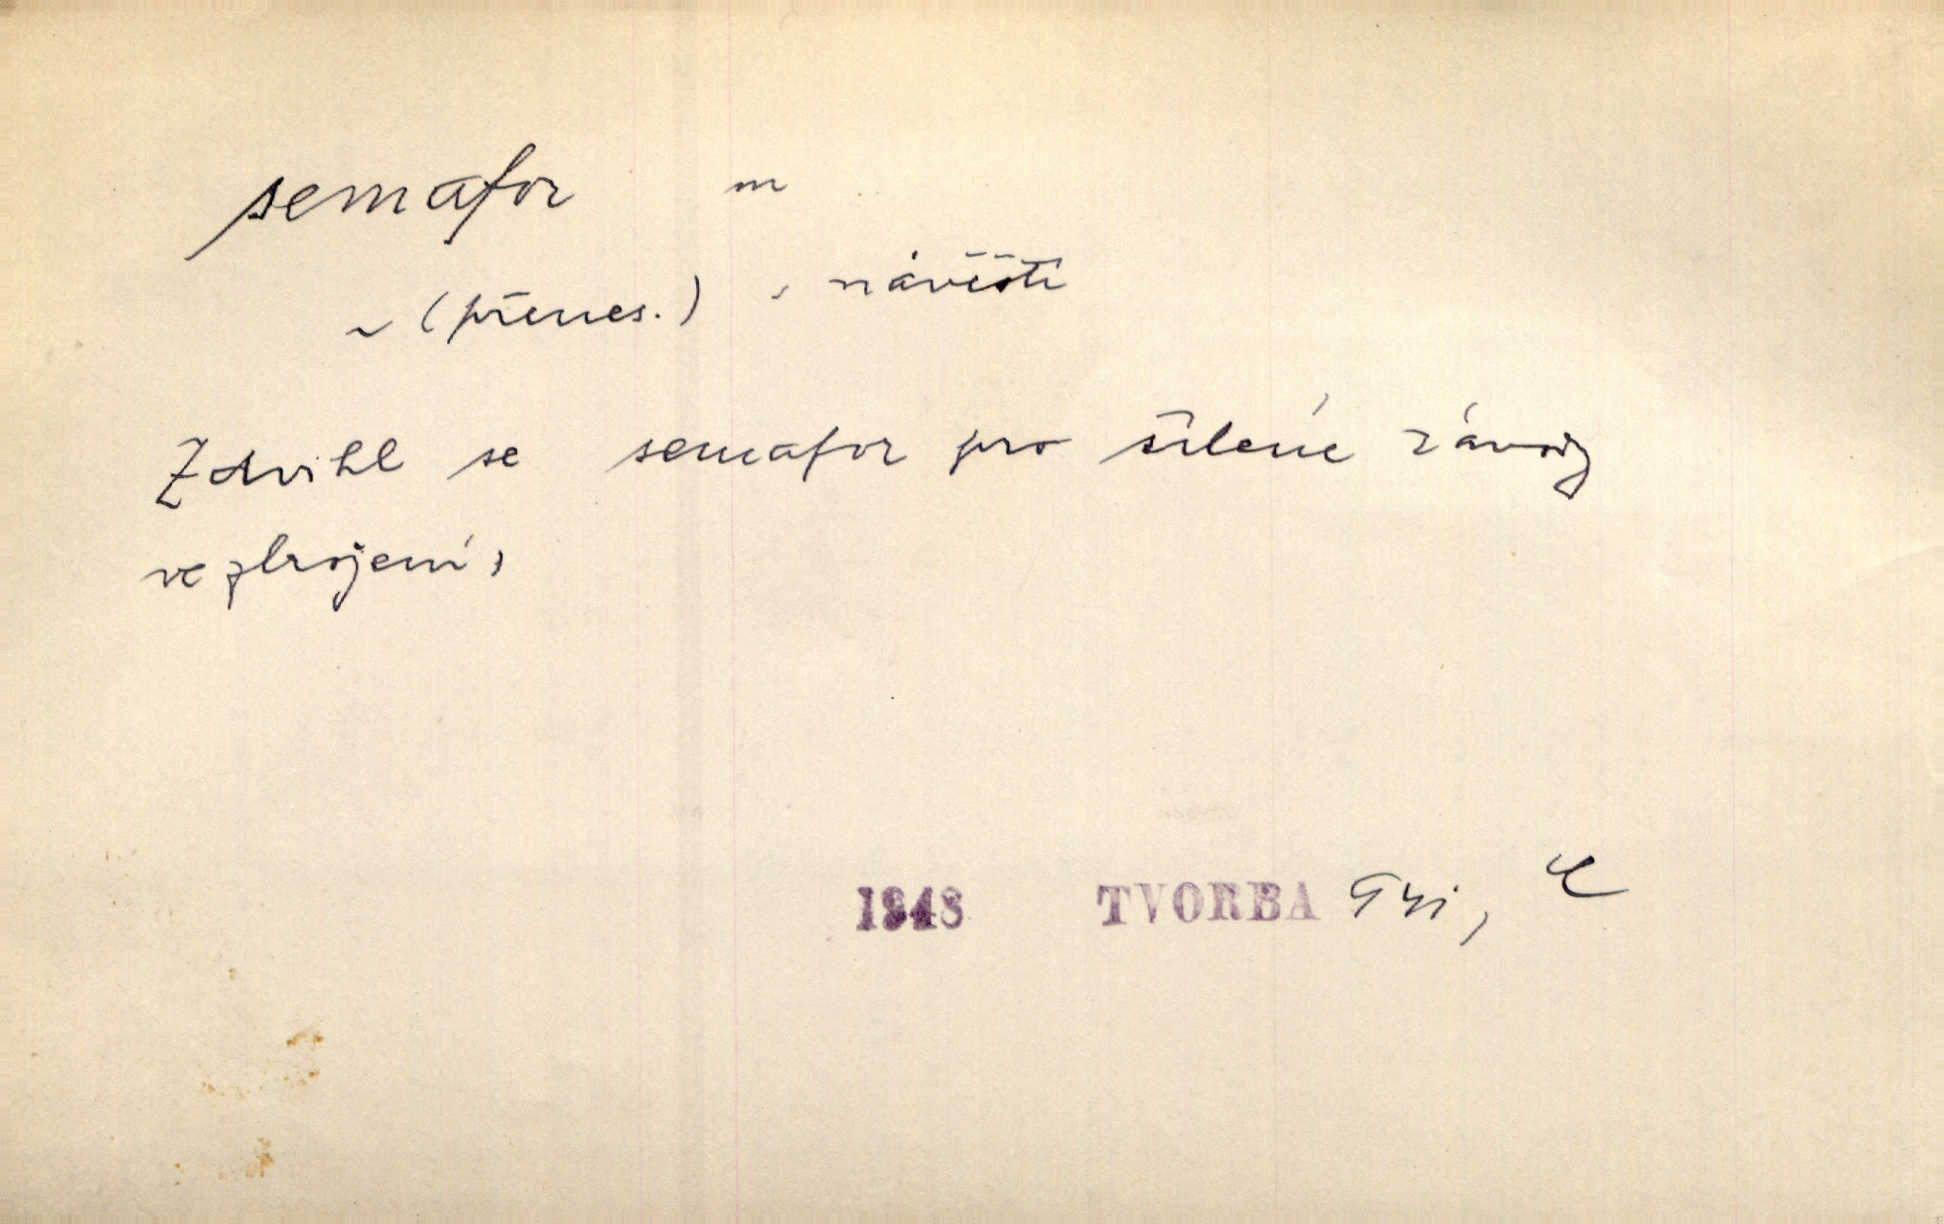 semafor m
~ (přenes.) , návěští
Zdvihl se semafor pro šílené závody
ve zbrojení,
1948 TVORBA